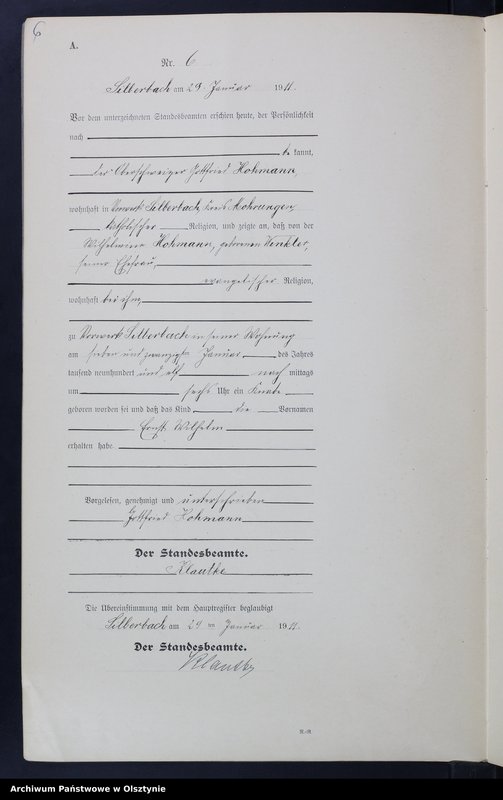 6
A.
Nr. 6
Silberbach am 29. Januar 1911.
Vor dem unterzeichneten Standesbeamten erschien heute, der Persönlichkeit
nach
be kannt,
der Oberschweizer Gottfried Hohmann,
wohnhaft in Vorwerk Silberbach, Kreis Mohrungen
katholischer Religion, und zeigte an, daß von der
Wilhelmine Hohmann, geborenen Winkler,
seiner Ehefrau,
evangelischer Religion,
wohnhaft bei ihm,
zu Vorwerk Silberbach in seiner Wohnung
am sieben und zwanzigsten Januar des Jahres
tausend neunhundert und elf nach mittags
um sechs Uhr ein Knabe
geboren worden sei und daß das Kind die Vornamen
Ernst Wilhelm
erhalten habe
Vorgelesen, genehmigt und unterschrieben
Gottfried Hohmann
Der Standesbeamte.
Klautke
Die Übereinstimmung mit dem Hauptregister beglaubigt
Silberbach am 29 ten Januar 1911.
Der Standesbeamte.
Klautke
Archiwum Państwowe w Olsztynie